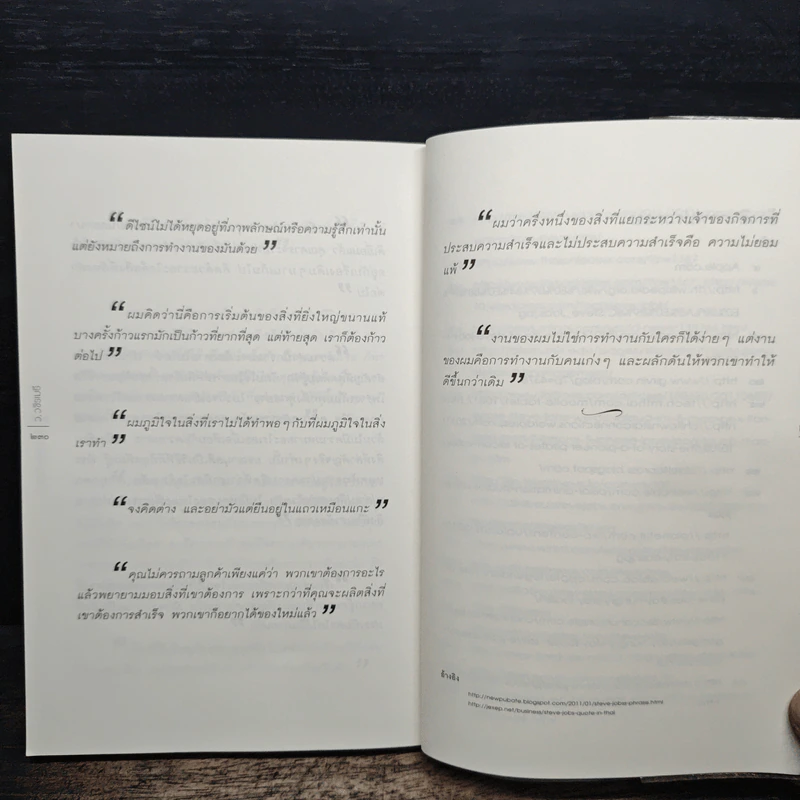 “ดีไซน์ไม่ได้หยุดอยู่ที่ภาพลักษณ์หรือความรู้สึกเท่านั้น
แต่ยังหมายถึงการทำงานของมันด้วย”
“ผมคิดว่านี่คือการเริ่มต้นของสิ่งที่ยิ่งใหญ่ขนานแท้
บางครั้งก้าวแรกมักเป็นก้าวที่ยากที่สุด แต่ท้ายสุด เราก็ต้องก้าว
ต่อไป”
“ผมภูมิใจในสิ่งที่เราไม่ได้ทำพอๆ กับที่ผมภูมิใจในสิ่ง
เราทำ”
“จงคิดต่าง และอย่ามัวแต่ยืนอยู่ในแถวเหมือนแกะ”
“คุณไม่ควรถามลูกค้าเพียงแค่ว่า พวกเขาต้องการอะไร
แล้วพยายามมอบสิ่งที่เขาต้องการ เพราะกว่าที่คุณจะผลิตสิ่งที่
เขาต้องการสำเร็จ พวกเขาก็อยากได้ของใหม่แล้ว”
๒๓๐ | ว. วชิรเมธี
“ผมว่าครึ่งหนึ่งของสิ่งที่แยกระหว่างเจ้าของกิจการที่
ประสบความสำเร็จและไม่ประสบความสำเร็จคือ ความไม่ยอม
แพ้”
“งานของผมไม่ใช่การทำงานกับใครก็ได้ง่ายๆ แต่งาน
ของผมคือการทำงานกับคนเก่งๆ และผลักดันให้พวกเขาทำให้
ดีขึ้นกว่าเดิม”
อ้างอิง
http://newpubate.blogspot.com/2011/01/steve-jobs-phrass.html
http://jexep.net/business/steve-jobs-quote-in-thai